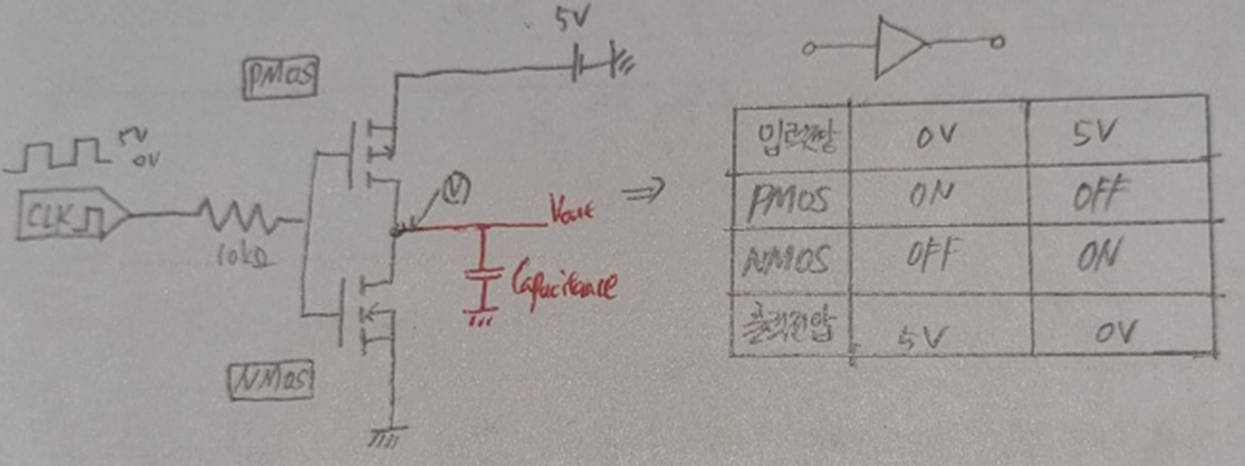 5V
PMOS
5V
0V
CLK
10kΩ
NMOS
(V)
Vout
Capacitance
⇒
입력전압 0V 5V
PMOS ON OFF
NMOS OFF ON
출력전압 5V 0V